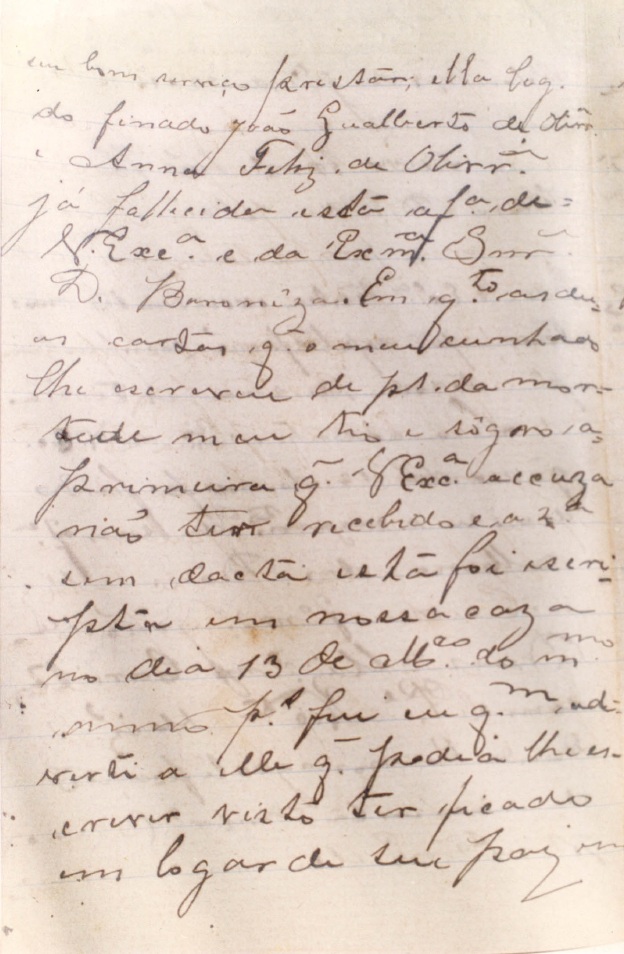 um bom serviço prestar, ella log.
do finado João Gualberto de Olivr.ª
e Anna Feliz. de Olivr.ª
já fallecida está a f.ª de=
V. Exc.ª e da Exm.ª Snr.ª
D. Baroniza. Em q.to as du-
as cartas q. o meu cunhado
lhe escreveu de pt. da mor-
te de meu tio e sôgro a-
primeira q. V Exc.ª accuza
não ter recebido e a 2.ª
sem dacta está foi escri-
pta em nossa caza
no dia 13 de do m.mo
p.r fui eu q.m ad-
verti a elle q. podia lhe es-
crever visto ter ficado
em logar de seu pai